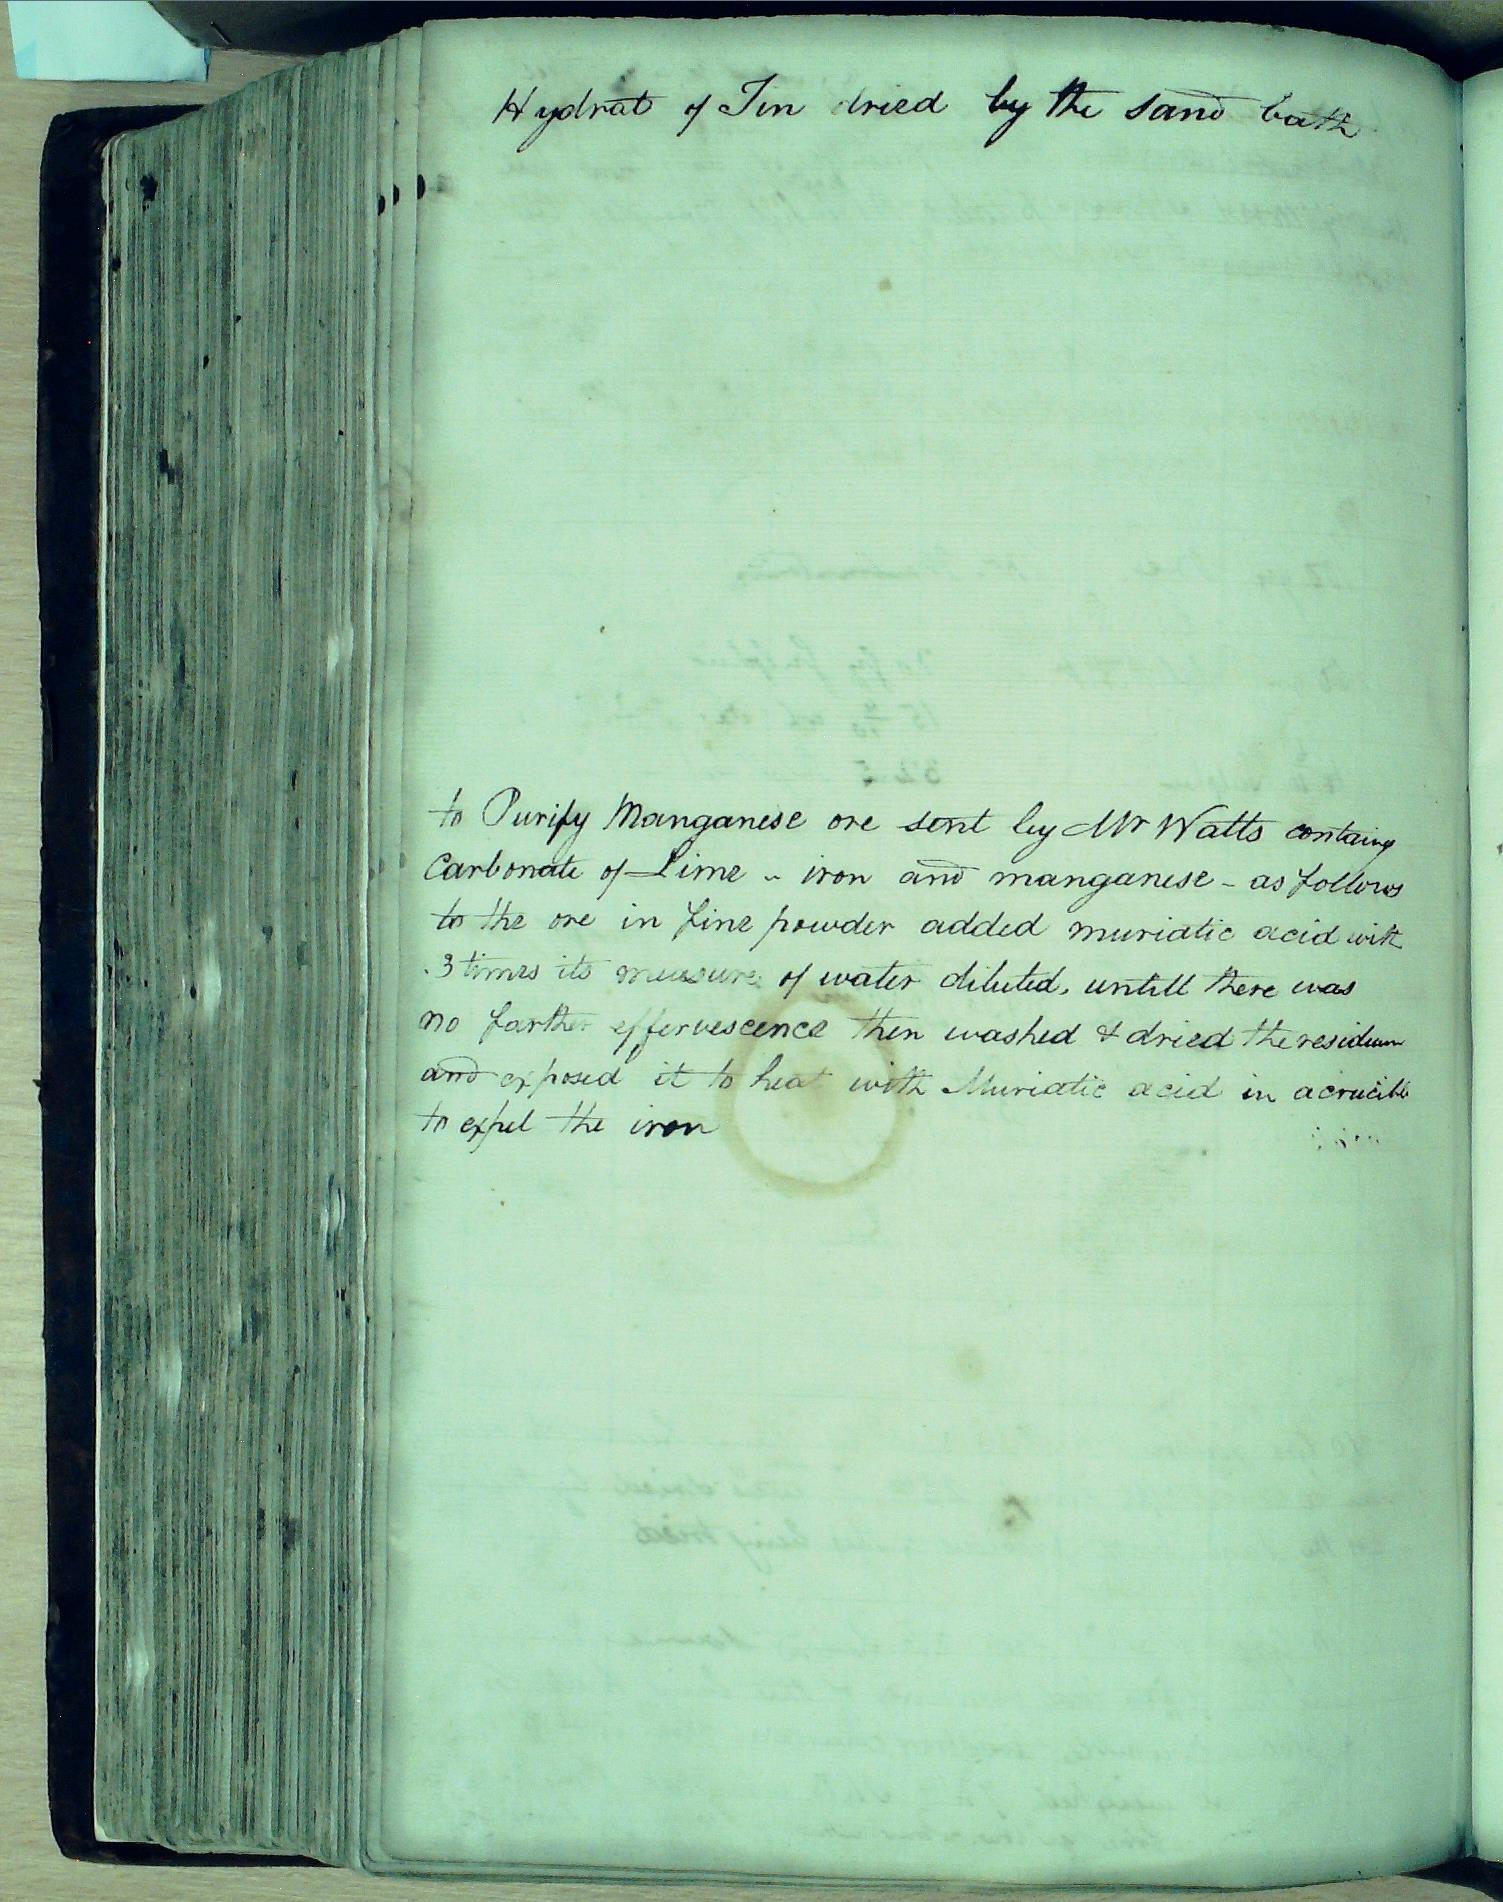 Hydrat of Tin dried by the sand bath
to Purify Manganese ore sent by Mr Watts containg
Carbonate of Lime - iron and manganese - as follows
to the ore in fine powder added muriatic acid with
3 times its measure of water diluted, untill there was
no farther effervescence then washed & dried the residuum
and exposed it to heat with Muriatic acid in a crucible
to expel the iron